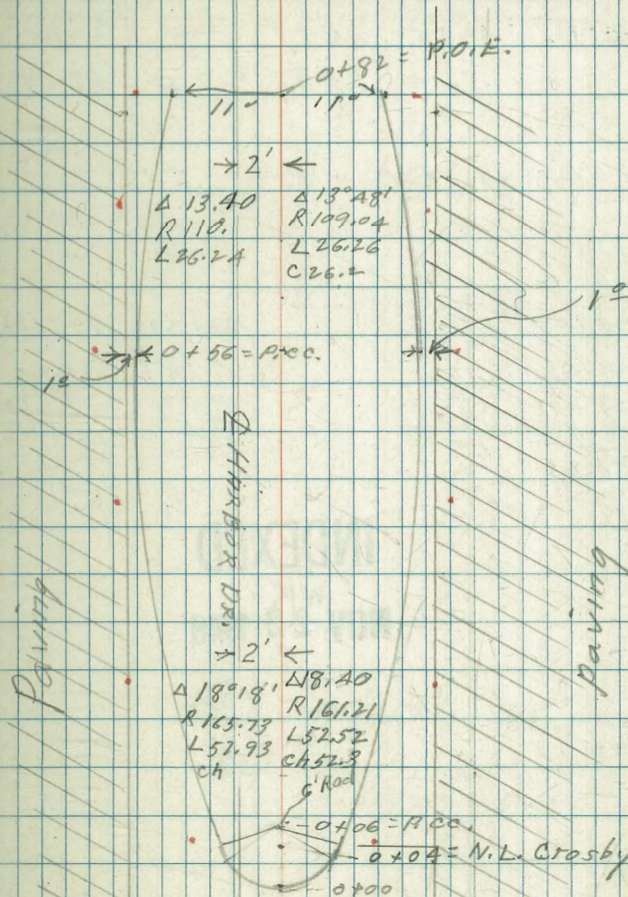 0+82 = P.O.E.
11° 11°
2'
Δ 13.40
R 110.
L 26.24
Δ 13°48'
R 109.04
L 26.26
C 26.2
1°
0+56 = P.C.C.
1°
℄ HARBOR DR.
Paving
Paving
2'
Δ 18°18'
R 165.73
L 52.93
ch
Δ 18.40
R 161.21
L 52.52
Ch 52.3
6' Rad
0+06 = P.C.C.
0+04 = N.L. Crosby
0+00